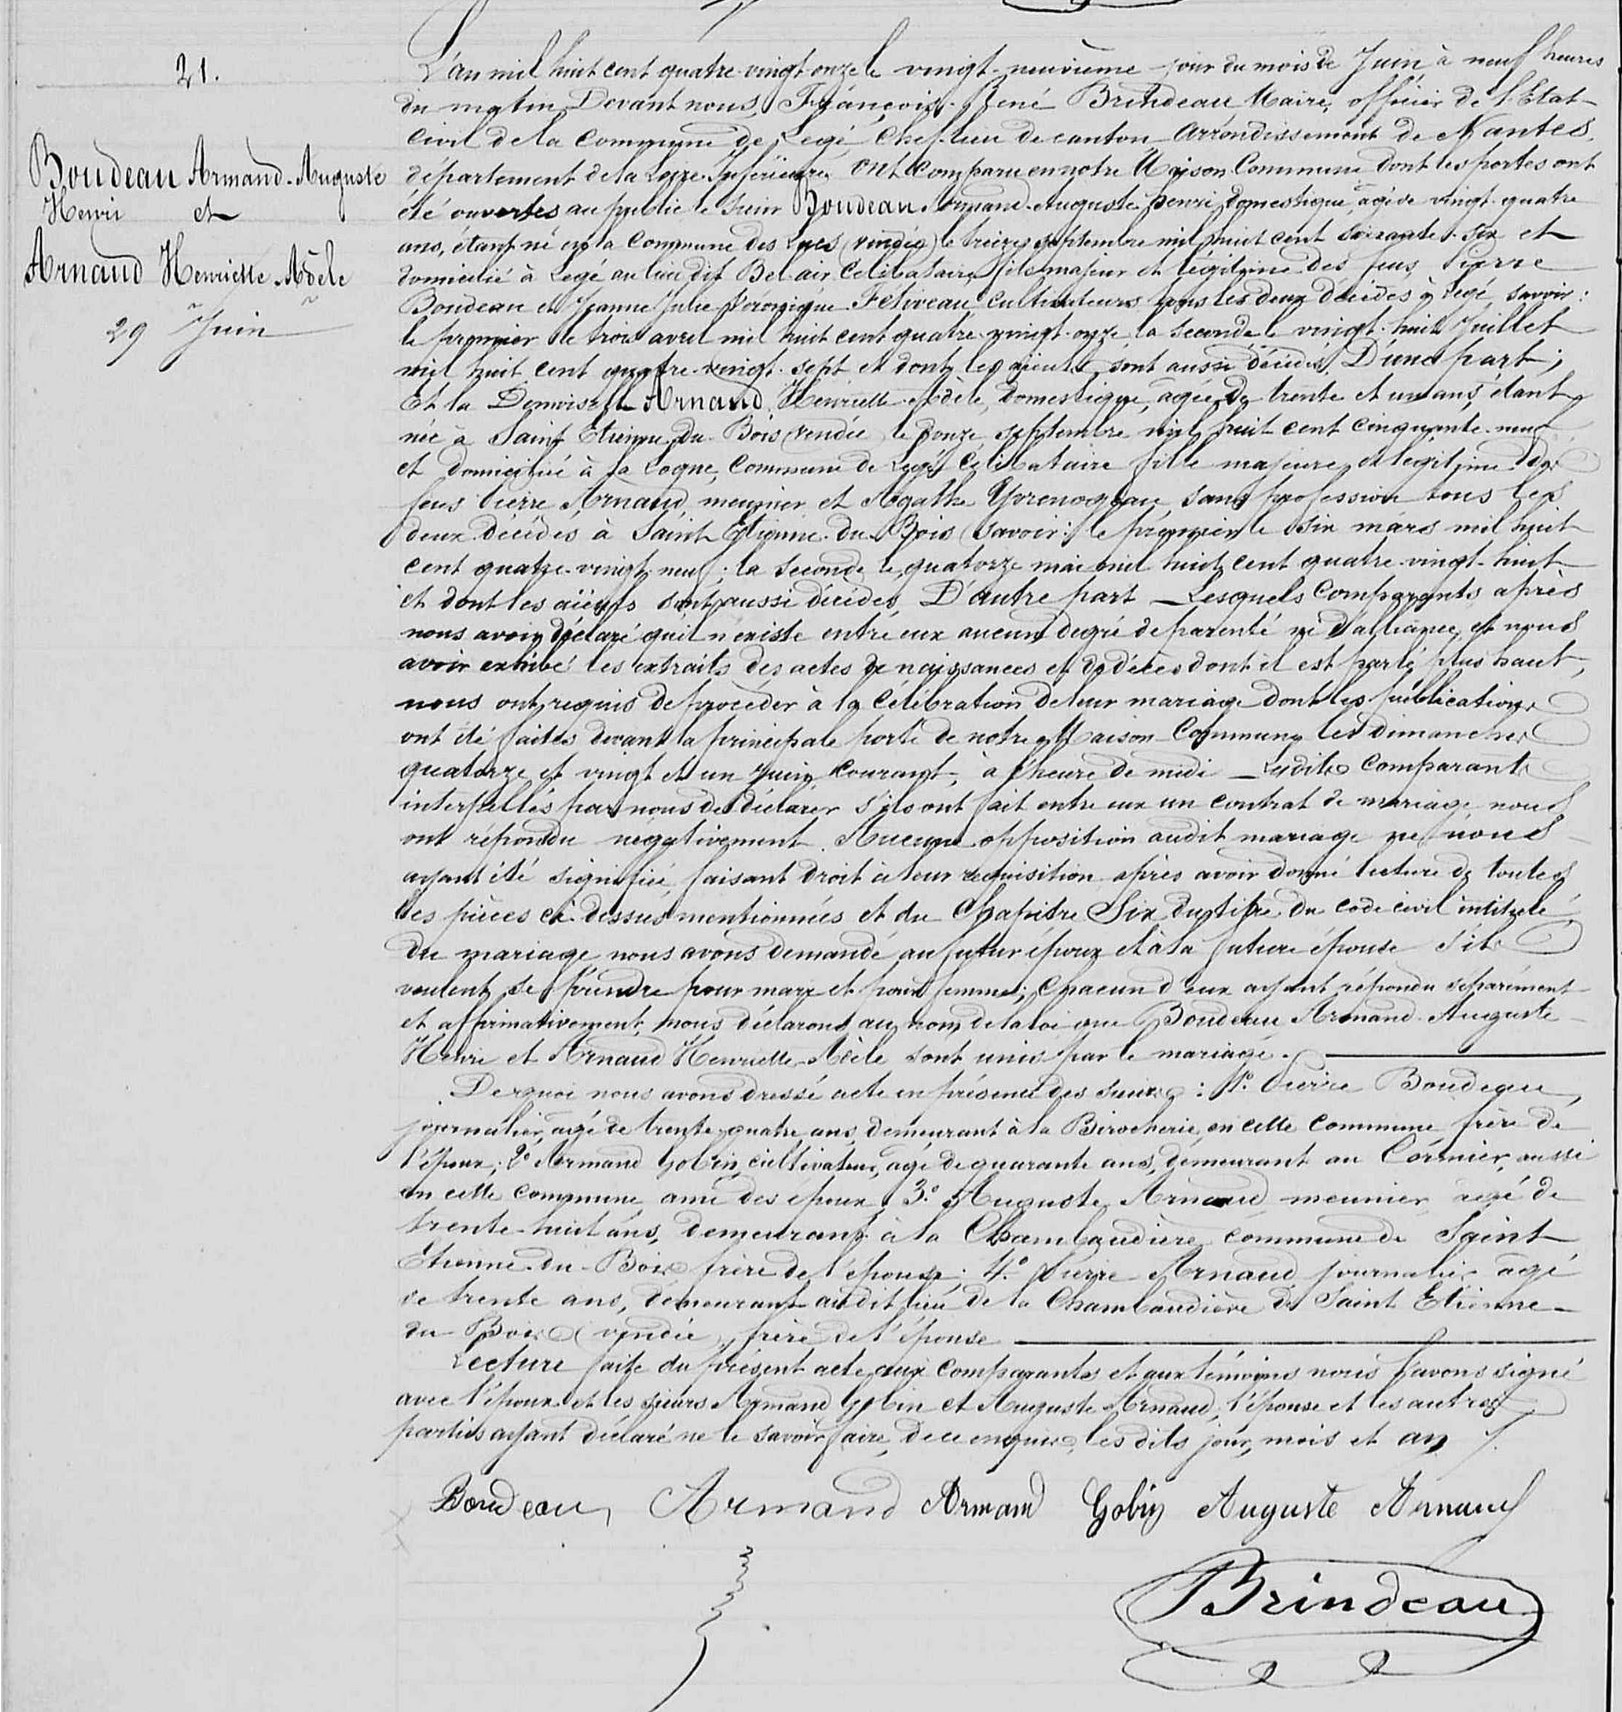 21.
Boudeau Armand-Auguste
Henri et
Arnaud Henriette-Adèle
29 Juin
L'an mil huit cent quatre-vingt-onze le vingt-neuvième jour du mois de Juin à neuf heures
du matin, Devant nous, François-René Brindeau Maire, officier de l'Etat-
civil de la Commune de Legé, Chef-lieu de canton, Arrondissement de Nantes,
département de la Loire-Inférieure, ont comparu en notre Maison Commune dont les portes ont
été ouvertes au public le sieur Boudeau Armand-Auguste Henri, domestique, âgé de vingt-quatre
ans, étant né en la Commune des Lucs (vendée) le treize septembre mil huit cent soixante-six et
domicilié à Legé au lieu dit Bel-air, Célibataire, fils majeur et légitime des feus Pierre
Boudeau et Jeanne Julie Véronique Fétiveau, Cultivateurs, tous les deux décédés à Legé, savoir:
le premier le trois avril mil huit cent quatre-vingt-onze, la seconde le vingt-huit Juillet
mil huit cent quatre-vingt-sept et dont les aïeuls sont aussi décédés, D'une part;
Et la Demoiselle Arnaud, Henriette-Adèle, domestique, âgée de trente et un ans, étant
née à Saint Etienne-du-Bois (vendée) le douze septembre mil huit cent cinquante-neuf
et domiciliée à la Logne, Commune de Legé, Célibataire fille majeure et légitime des
feus Pierre Arnaud, meunier et Agathe sans profession tous les
deux décédés à Saint Etienne-du-Bois savoir: le premier le six mars mil huit
cent quatre-vingt-neuf; la seconde le quatorze mai mil huit cent quatre-vingt-huit
et dont les aïeuls sont aussi décédés, D'autre part – Lesquels Comparants après
nous avoir déclaré qu'il n'existe entre eux aucun degré de parenté ni d'alliance, et nous
avoir exhibé les extraits des actes de naissances et de décès dont il est parlé plus haut,
nous ont requis de procéder à la célébration de leur mariage dont les publications
ont été faites devant la principale porte de notre Maison Commune les dimanches
quatorze et vingt et un Juin courant, à l'heure de midi – Lesdits Comparants
interpellés par nous de déclarer s'ils ont fait entre eux un contrat de mariage nous
ont répondu négativement. Aucune opposition audit mariage ne nous
ayant été signifiée, faisant droit à leur réquisition après avoir donné lecture de toutes
les pièces ci-dessus mentionnées et du Chapitre Six du titre du code civil intitulé
du mariage nous avons demandé au futur époux et à la future épouse s'ils
veulent se prendre pour mari et pour femme; chacun d'eux ayant répondu séparément
et affirmativement, nous déclarons au nom de la loi que Boudeau Armand-Auguste-
Henri et Arnaud Henriette-Adèle sont unis par le mariage.
De quoi nous avons dressé acte en présence des sieurs: 1º Pierre Boudeau,
journalier, âgé de trente-quatre ans, demeurant à la Birocherie, en cette commune frère de
l'époux; 2º Armand Gobin, cultivateur, âgé de quarante ans, demeurant au Cormier, aussi
en cette commune ami des époux; 3º Auguste Arnaud meunier âgé de
trente-huit ans, demeurant à la Chambaudière commune de Saint
Etienne-du-Bois frère de l'épouse; 4º Pierre Arnaud journalier âgé
de trente ans, demeurant audit lieu de la Chambaudière de Saint Etienne-
du-Bois (vendée), frère de l'épouse
Lecture faite du présent acte aux comparants et aux témoins nous l'avons signé
avec l'époux et les sieurs Armand Gobin et Auguste Arnaud, l'épouse et les autres
parties ayant déclaré ne le savoir faire, de ce enquis, les dits jour, mois et an
Boudeau Armand Armand Gobin Auguste Arnaud
Brindeau